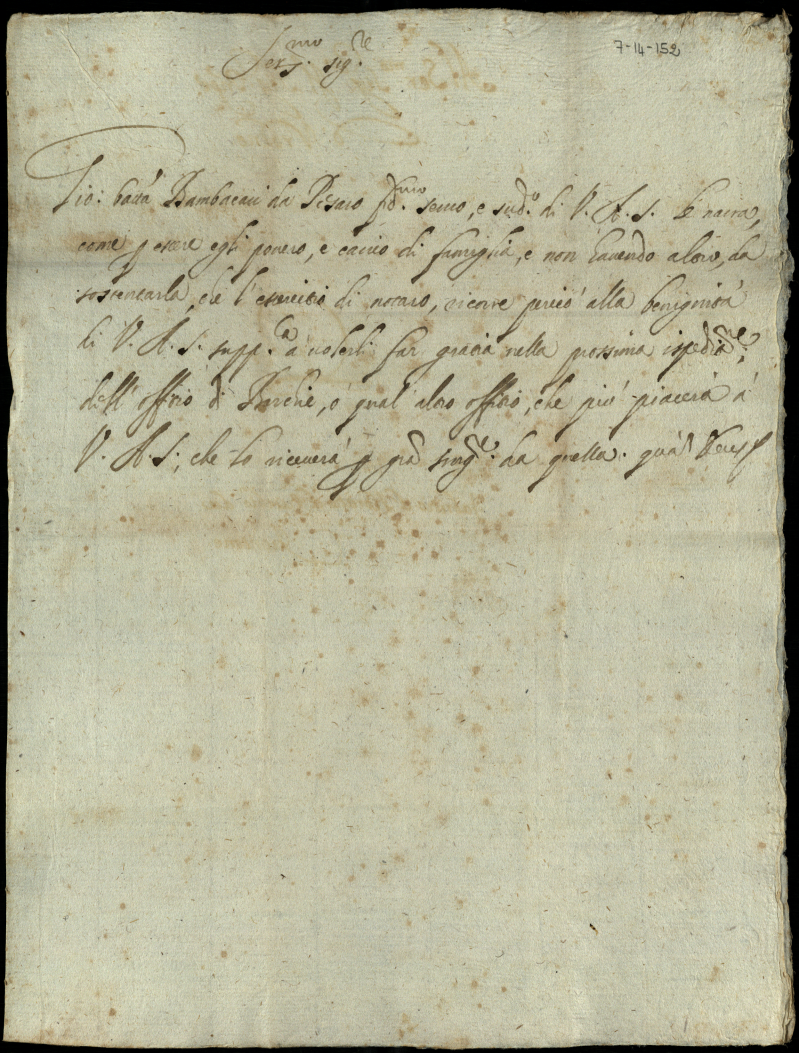 7-14-152
Ser.mo sig.re
Gio: batta Bambacari da Pesaro fid.mo servo, e sud.o di V. A. S. le narra,
come p essere egli povero, e carico di famiglia, e non havendo altro, da
sostentarla, che l'esercitio di notaro, ricorre perciò alla benignità
di V. A. S. supp.a à volerli far gratia nella prossima ispeditt.ne
dell' offitio di Barchi, ò qual' altro offitio, che più piacerà à
V. A. S., che lo riceverà p gra sing.re da quella. quà